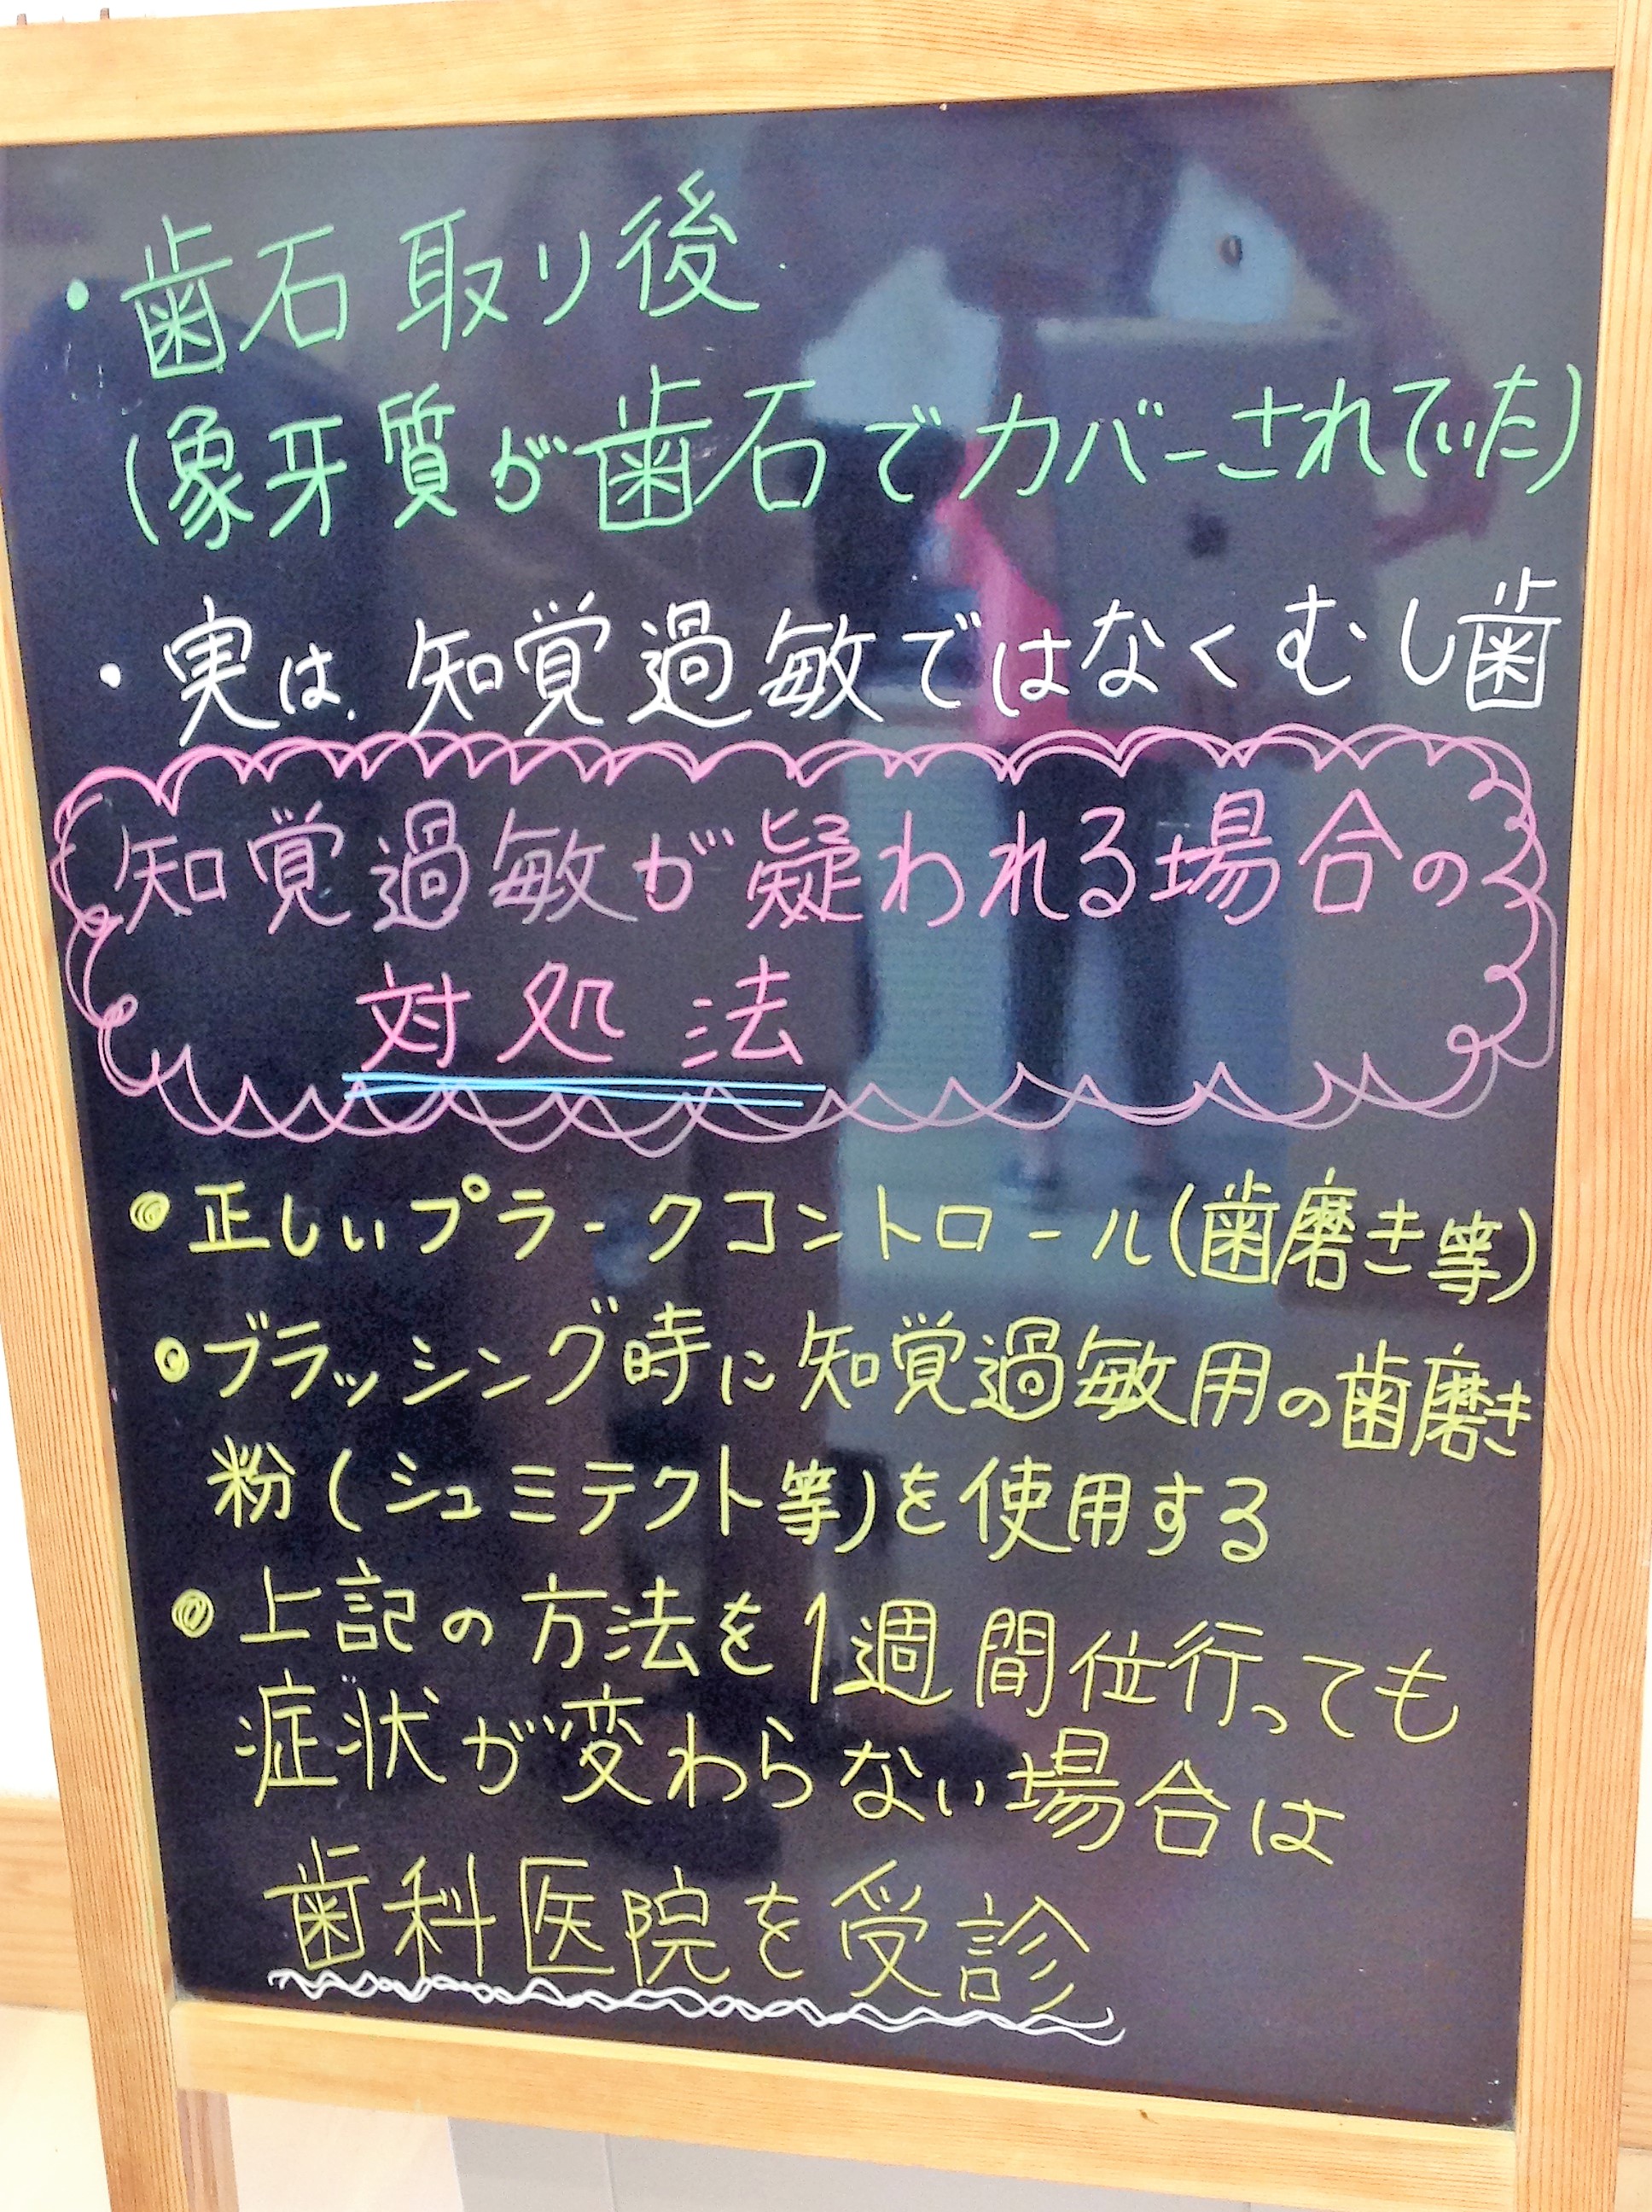 ・歯石取り後
(象牙質が歯石でカバーされていた)
・実は、知覚過敏ではなくむし歯
知覚過敏が疑われる場合の
対処法
●正しいプラークコントロール(歯磨き等)
●ブラッシング時に知覚過敏用の歯磨き
粉(シュミテクト等)を使用する
●上記の方法を1週間位行っても
症状が変わらない場合は
歯科医院を受診